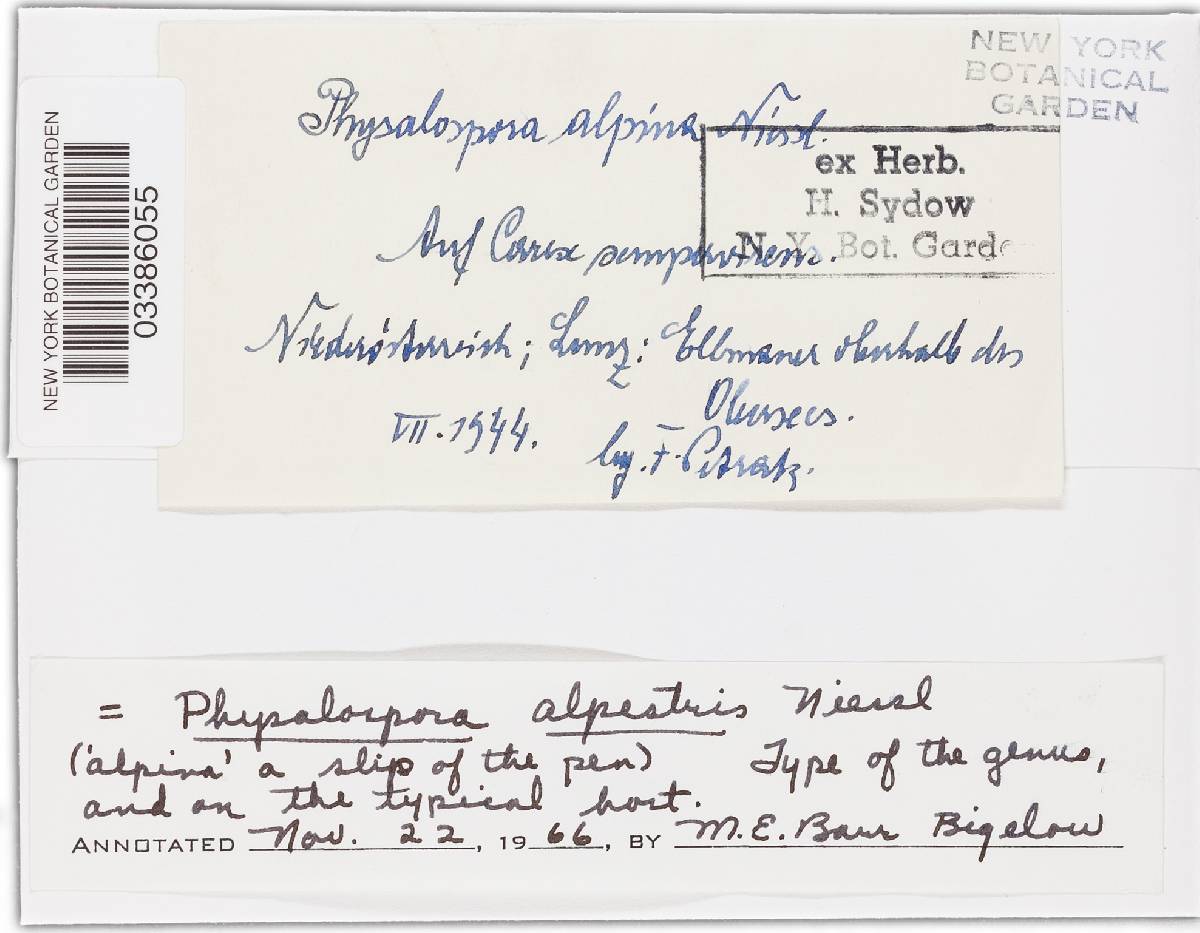 NEW YORK
BOTANICAL
GARDEN
Physalospora alpina Niessl.
ex Herb.
H. Sydow
N. Y. Bot. Garde
Auf Carex sempervirens.
Niederösterreich; Lunz: Ellmauer oberhalb des
Obersees.
VII. 1944.
lug. F. Petrak.
NEW YORK BOTANICAL GARDEN
03386055
= Physalospora alpestris Niessl
('alpina' a slip of the pen) Type of the genus,
and on the typical host.
ANNOTATED Nov. 22, 1966, BY M.E. Barr Bigelow